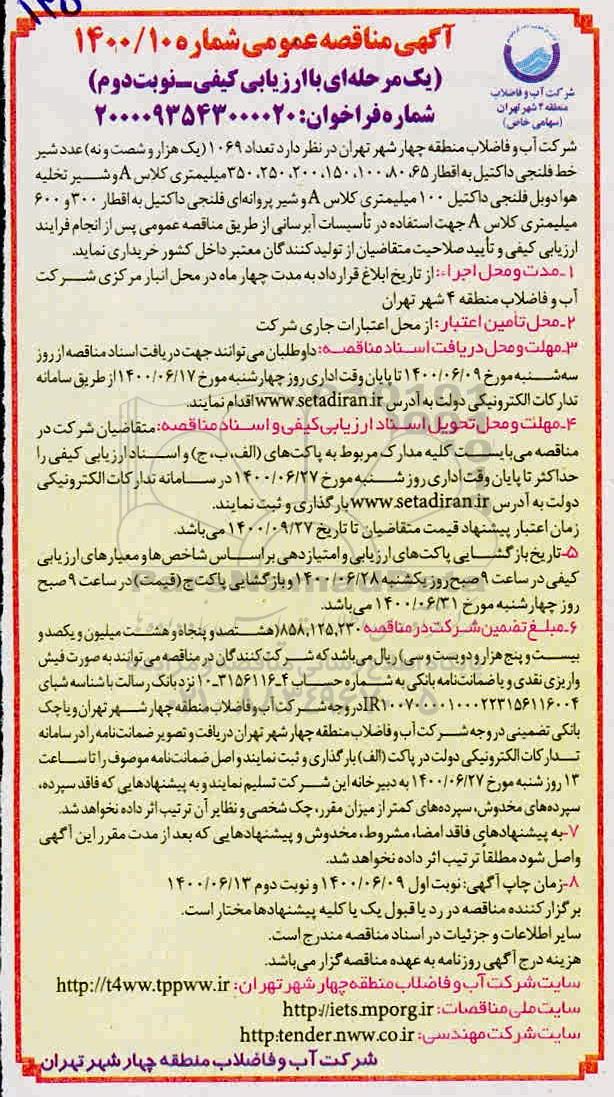 آگهی مناقصه عمومی شماره ۱۴۰۰/۱۰
(یک مرحله‌ای با ارزیابی کیفی_نوبت دوم)
شماره فراخوان: ۲۰۰۰۰۹۳۵۴۳۰۰۰۰۲۰
شرکت آب و فاضلاب
منطقه ۴ شهر تهران
(سهامی خاص)
شرکت آب و فاضلاب منطقه چهار شهر تهران در نظر دارد تعداد ۱۰۶۹ (یک هزار و شصت و نه) عدد شیر
خط فلنجی داکتیل به اقطار ۶۵، ۸۰، ۱۰۰، ۱۵۰، ۲۰۰، ۲۵۰، ۳۵۰ میلیمتری کلاس A و شیر تخلیه
هوا دوبل فلنجی داکتیل ۱۰۰ میلیمتری کلاس A و شیر پروانه‌ای فلنجی داکتیل به اقطار ۳۰۰ و ۶۰۰
میلیمتری کلاس A جهت استفاده در تأسیسات آبرسانی از طریق مناقصه عمومی پس از انجام فرایند
ارزیابی کیفی و تأیید صلاحیت متقاضیان از تولیدکنندگان معتبر داخل کشور خریداری نماید.
۱_مدت و محل اجراء: از تاریخ ابلاغ قرارداد به مدت چهار ماه در محل انبار مرکزی شرکت
آب و فاضلاب منطقه ۴ شهر تهران
۲_محل تأمین اعتبار: از محل اعتبارات جاری شرکت
۳_مهلت و محل دریافت اسناد مناقصه: داوطلبان می‌توانند جهت دریافت اسناد مناقصه از روز
سه‌شنبه مورخ ۱۴۰۰/۰۶/۰۹ تا پایان وقت اداری روز چهارشنبه مورخ ۱۴۰۰/۰۶/۱۷ از طریق سامانه
تدارکات الکترونیکی دولت به آدرس www.setadiran.ir اقدام نمایند.
۴_مهلت و محل تحویل اسناد ارزیابی کیفی و اسناد مناقصه: متقاضیان شرکت در
مناقصه می‌بایست کلیه مدارک مربوط به پاکت‌های (الف، ب، ج) و اسناد ارزیابی کیفی را
حداکثر تا پایان وقت اداری روز شنبه مورخ ۱۴۰۰/۰۶/۲۷ در سامانه تدارکات الکترونیکی
دولت به آدرس www.setadiran.ir بارگذاری و ثبت نمایند.
زمان اعتبار پیشنهاد قیمت متقاضیان تا تاریخ ۱۴۰۰/۰۹/۲۷ می‌باشد.
۵-تاریخ بازگشایی پاکت‌های ارزیابی و امتیازدهی بر اساس شاخص‌ها و معیارهای ارزیابی
کیفی در ساعت ۹ صبح روز یکشنبه ۱۴۰۰/۰۶/۲۸ و بازگشایی پاکت ج (قیمت) در ساعت ۹ صبح
روز چهارشنبه مورخ ۱۴۰۰/۰۶/۳۱ می‌باشد.
۶_مبلغ تضمین شرکت در مناقصه ۸۵۸,۱۲۵,۲۳۰ (هشتصد و پنجاه و هشت میلیون و یکصد و
بیست و پنج هزار و دویست و سی) ریال می‌باشد که شرکت‌کنندگان در مناقصه می‌توانند به صورت فیش
واریزی نقدی و یا ضمانت‌نامه بانکی به شماره حساب ۴_۳۱۵۶۱۱۶_۱۰ نزد بانک رسالت با شناسه شبای
در وجه شرکت آب و فاضلاب منطقه چهار شهر تهران و یا چک
بانکی تضمینی در وجه شرکت آب و فاضلاب منطقه چهار شهر تهران دریافت و تصویر ضمانت‌نامه را در سامانه
تدارکات الکترونیکی دولت در پاکت (الف) بارگذاری و ثبت نمایند و اصل ضمانت‌نامه موصوف را تا ساعت
۱۳ روز شنبه مورخ ۱۴۰۰/۰۶/۲۷ به دبیرخانه این شرکت تسلیم نمایند و به پیشنهادهایی که فاقد سپرده،
سپرده‌های مخدوش، سپرده‌های کمتر از میزان مقرر، چک شخصی و نظایر آن ترتیب اثر داده نخواهد شد.
۷-به پیشنهادهای فاقد امضا، مشروط، مخدوش و پیشنهادهایی که بعد از مدت مقرر این آگهی
واصل شود مطلقاً ترتیب اثر داده نخواهد شد.
۸-زمان چاپ آگهی: نوبت اول ۱۴۰۰/۰۶/۰۹ و نوبت دوم ۱۴۰۰/۰۶/۱۳
برگزارکننده مناقصه در رد یا قبول یک یا کلیه پیشنهادها مختار است.
سایر اطلاعات و جزئیات در اسناد مناقصه مندرج است.
هزینه درج آگهی روزنامه به عهده مناقصه‌گزار می‌باشد.
سایت شرکت آب و فاضلاب منطقه چهار شهر تهران: http://t4ww.tppww.ir
سایت ملی مناقصات: http://iets.mporg.ir
سایت شرکت مهندسی: http:tender.nww.co.ir
شرکت آب و فاضلاب منطقه چهار شهر تهران